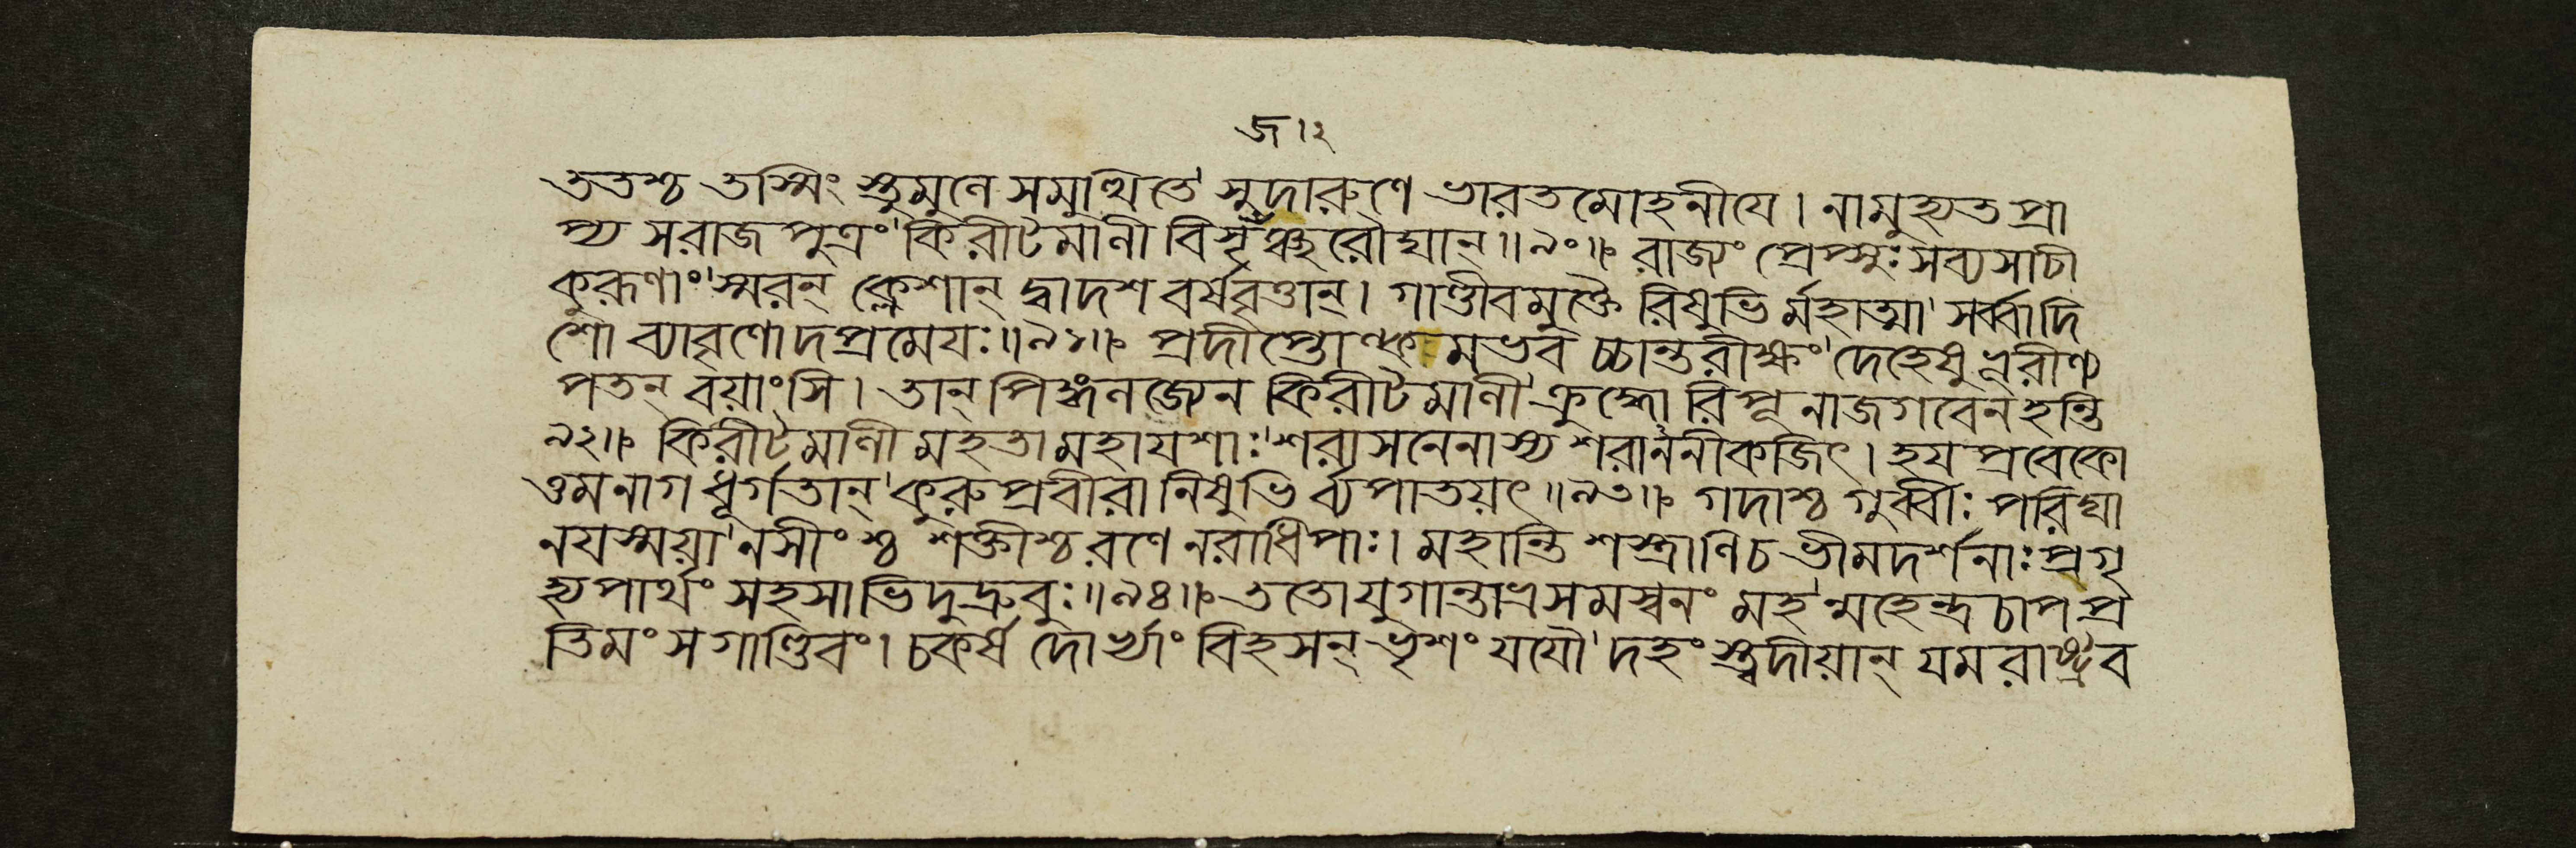 জ ৷ ২
ততশ্চ তস্মিং স্তুমুলে সমুত্থিতে' সুদারুণে ভারতমোহনীযে । নামুহ্যত প্রা
প্য সরাজপুত্রং' কিরীটমালী বিসৃজঞ্ছরৌঘান্ ॥ ৯০ ॥ রাজ্যং প্রেপ্সুঃ সব্যসাচী
কুরূণাং' স্মরন্ ক্লেশান্ দ্বাদশবর্ষবৃত্তান্ । গাণ্ডীবমুক্তৈ রিষুভি র্মহাত্মা' সর্ব্বাদি
শো ব্যাবৃণোদপ্রমেযঃ ॥ ৯১ ॥ প্রদীপ্তোল্কমভব চ্চান্তরীক্ষং' দেহেষু ভূরীণ্য
পতন্ বয়াংসি । তান্ পিঙ্গলজ্যেন কিরীটমালী' ক্রুদ্ধো রিপূ নাজগবেন হন্তি
৯২ ॥ কিরীটমালী মহতা মহাযশাঃ' শরাসনেনাস্য শরাননীকজিৎ । হযপ্রবেকো
ত্তমনাগধূর্গতান্' কুরুপ্রবীরা নিষুভি র্ব্যপাতয়ৎ ॥ ৯৩ ॥ গদাশ্চ গুর্ব্বীঃ পরিঘা
নযস্ময়া' নসীংশ্চ শক্তীশ্চ রণে নরাধিপাঃ । মহান্তি শস্ত্রাণিচ ভীমদর্শনাঃ প্রগৃ
হ্য পার্থং সহসাভিদুদ্রুবুঃ ॥ ৯৪ ॥ ততো যুগান্তাভ্রসমস্বনং মহ'ন্মহেন্দ্রচাপপ্র
তিমং স গাণ্ডিবং । চকর্ষ দোর্ভ্যাং বিহসন্ ভৃশং যযৌ' দহং স্ত্বদীয়ান্ যমরাষ্ট্রব